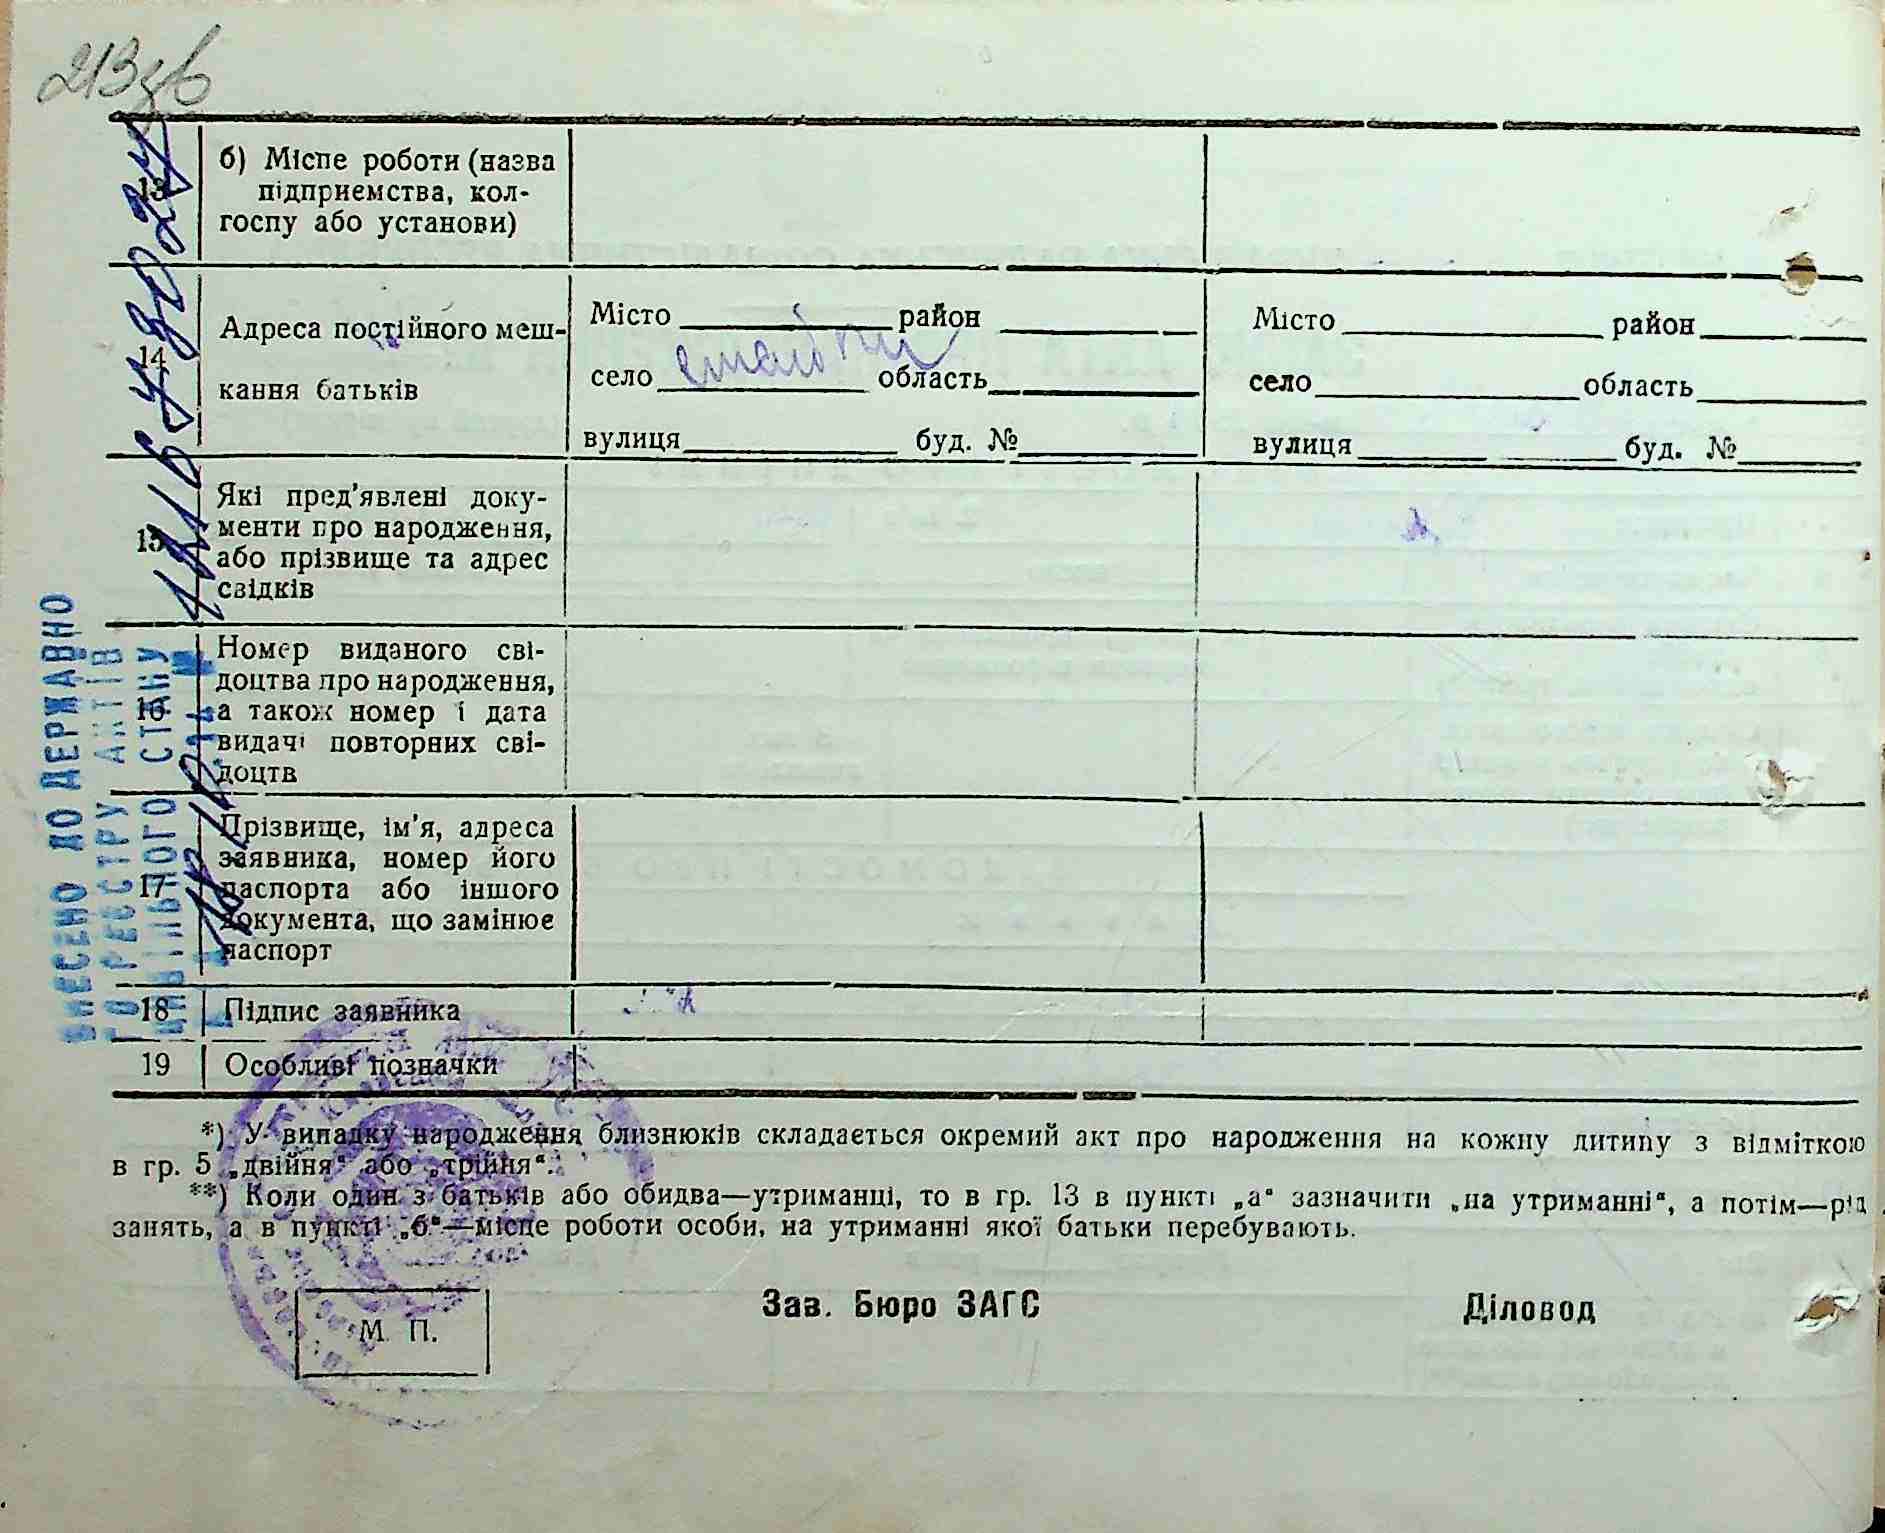 213зв
13
б) Місце роботи (назва
підприємства, кол-
госпу або установи)
14
Адреса постійного меш-
кання батьків
Місто район
село область
вулиця буд. №
Місто район
село область
вулиця буд. №
15
Які пред'явлені доку-
менти про народження,
або прізвище та адрес
свідків
16
Номер виданого сві-
доцтва про народження,
а також номер і дата
видачі повторних сві-
доцтв
17
Прізвище, ім'я, адреса
заявника, номер його
паспорта або іншого
документа, що замінює
паспорт
18 Підпис заявника
19 Особливі позначки
ВНЕСЕНО ДО ДЕРЖАВНО
ГО РЕЄСТРУ АКТІВ
ЦИВІЛЬНОГО СТАНУ
*) У випадку народження близнюків складається окремий акт про народження на кожну дитину з відміткою
в гр. 5 „двійня“ або „трійня“.
**) Коли один з батьків або обидва—утриманці, то в гр. 13 в пункті „а“ зазначити „на утриманні“, а потім—рід
занять, а в пункті „б“—місце роботи особи, на утриманні якої батьки перебувають.
М. П.
Зав. Бюро ЗАГС
Діловод